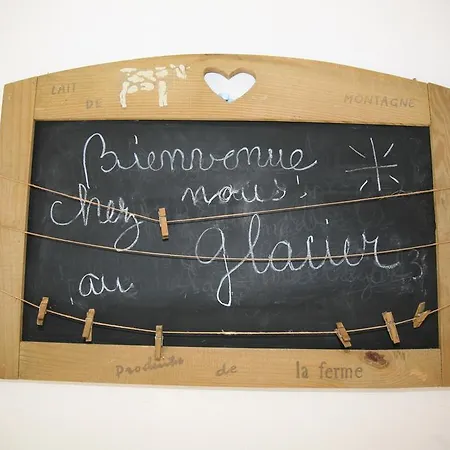 LAIT DE MONTAGNE
Bienvenue
chez nous!
au Glacier
Produits de la ferme